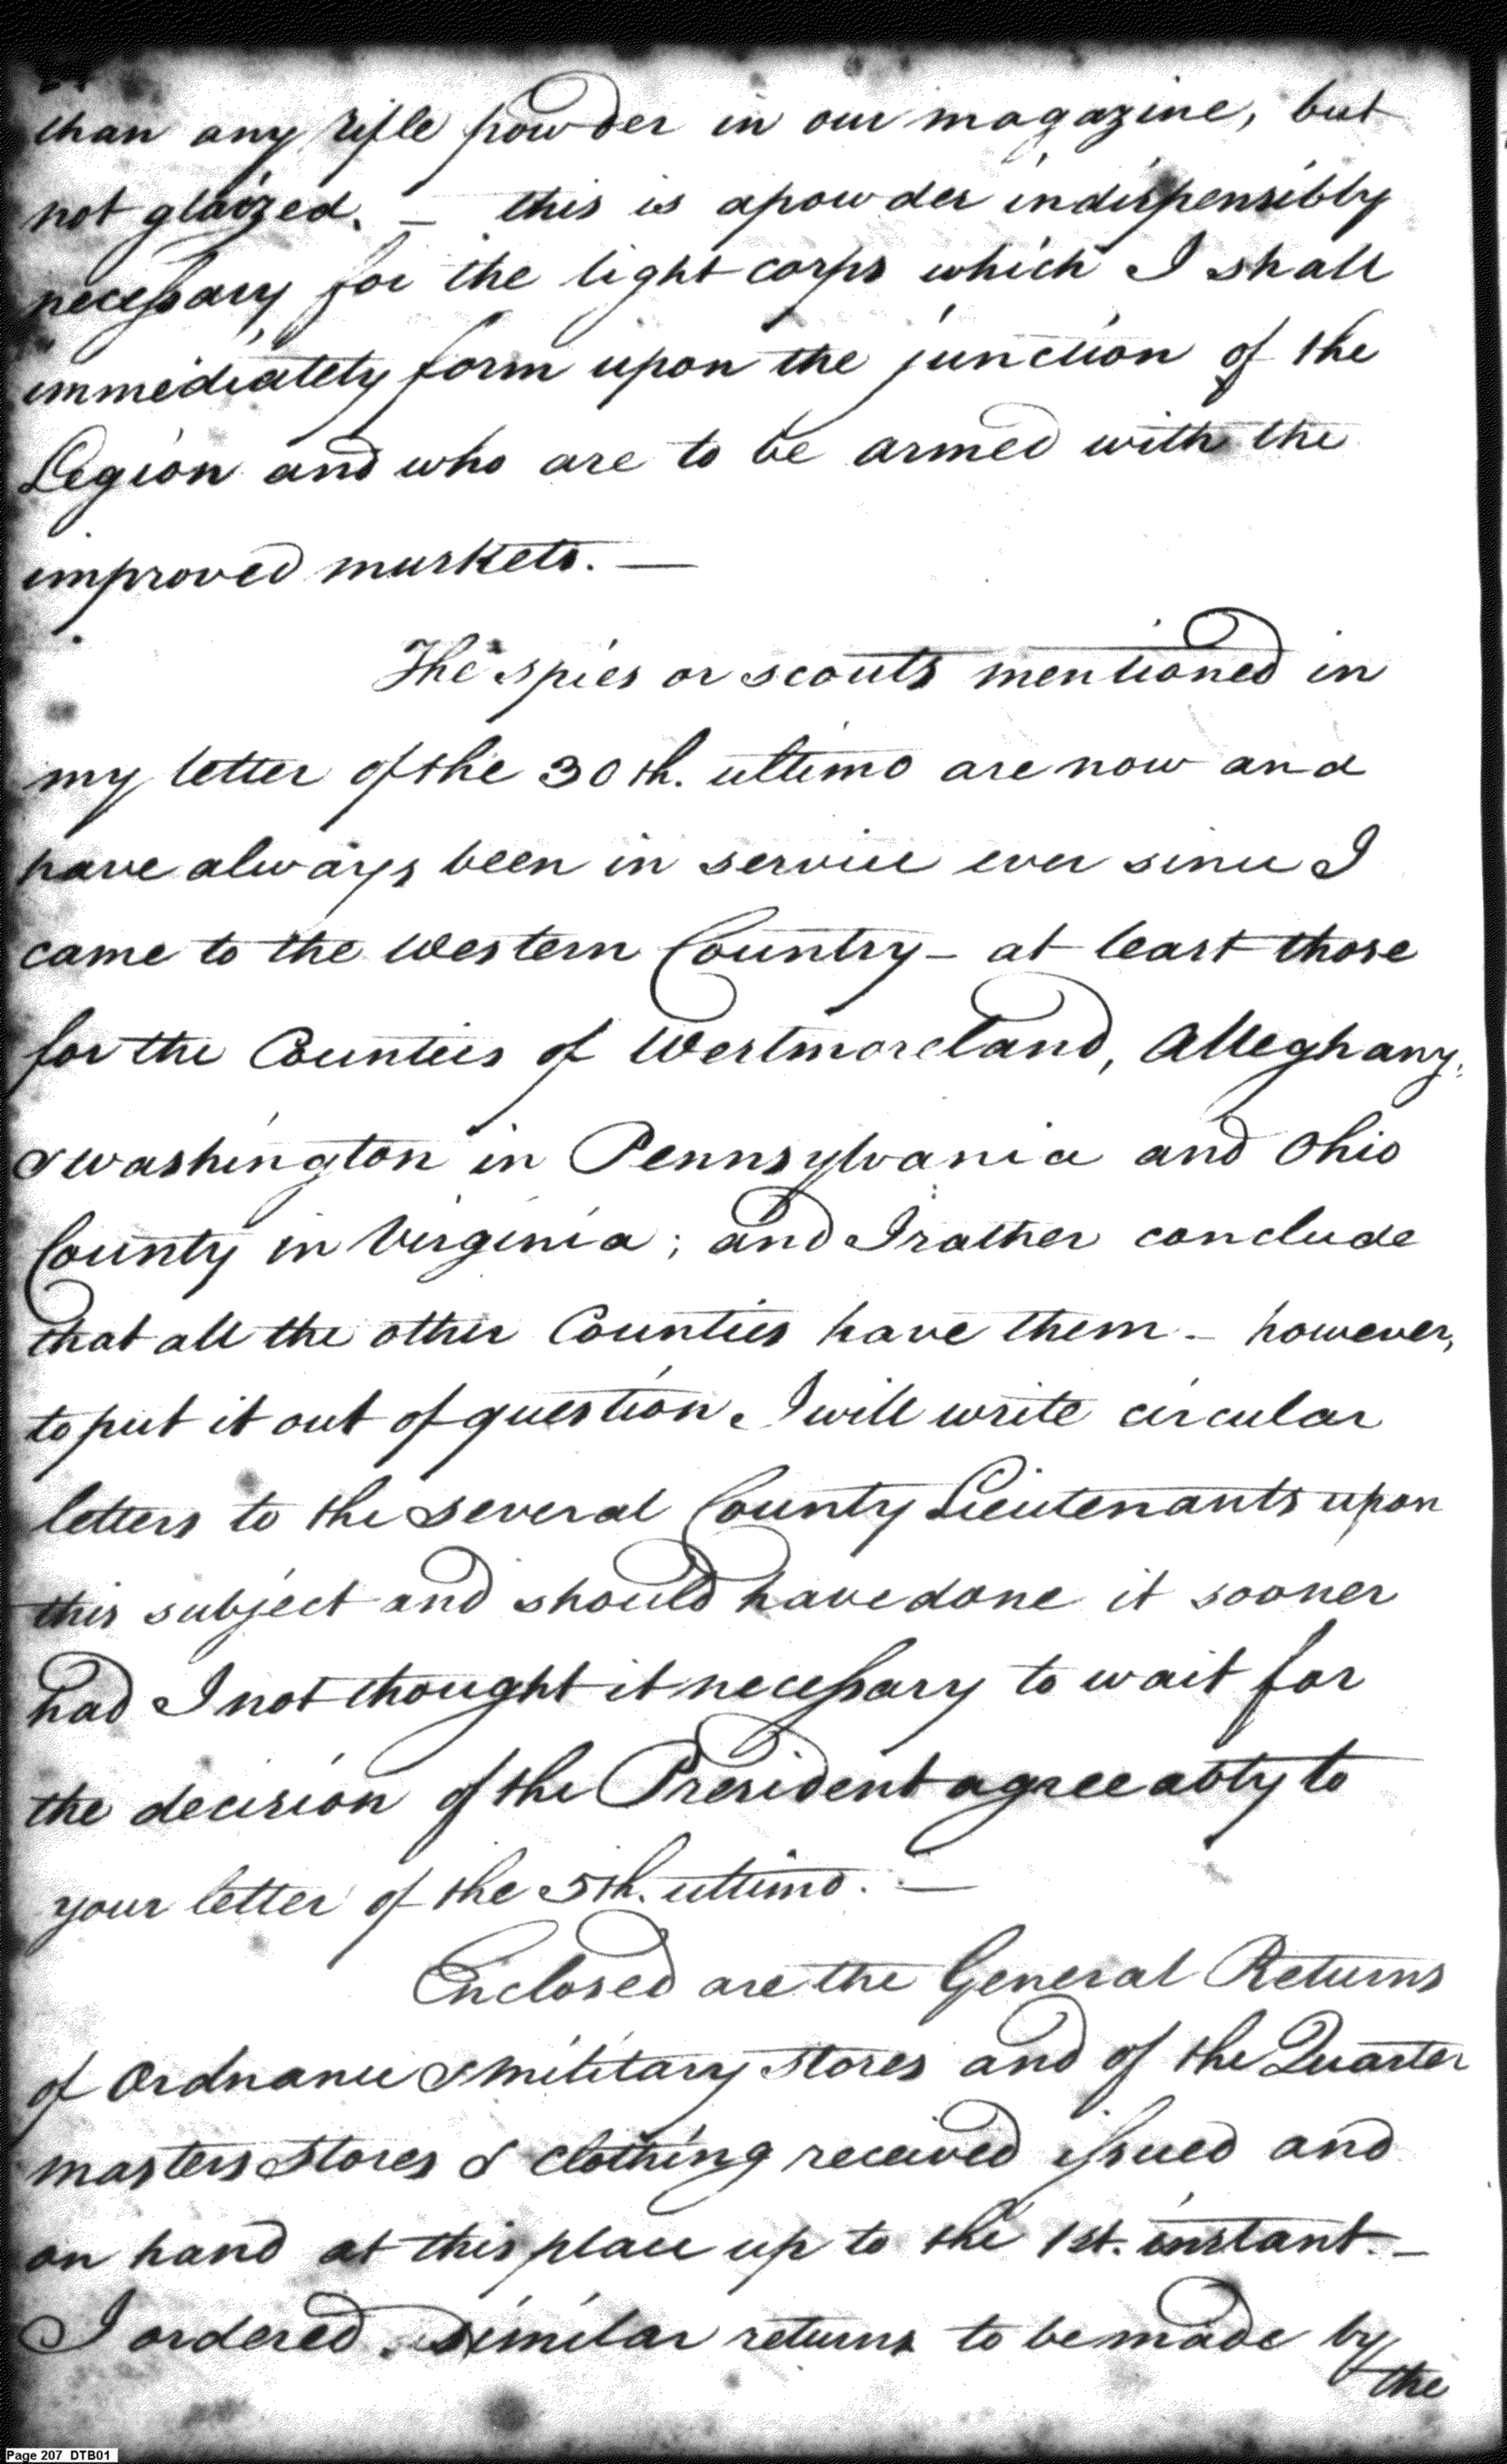 than any rifle powder in our magazine, but
not glaized. — this is a powder indispensibly
necessary for the light corps which I shall
immediately form upon the junction of the
Legion and who are to be armed with the
improved muskets. —
The spies or scouts mentioned in
my letter of the 30th. ultimo are now and
have always been in service ever since I
came to the Western Country — at least those
for the Counties of Westmoreland, Alleghany,
& Washington in Pennsylvania and Ohio
County in Virginia; and I rather conclude
that all the other Counties have them — however,
to put it out of question I will write circular
letters to the several County Lieutenants upon
this subject and should have done it sooner
had I not thought it necessary to wait for
the decision of the President agreeably to
your letter of the 5th. ultimo. —
Enclosed are the General Returns
of Ordnance & military stores and of the Quarter
masters Stores & Clothing received issued and
on hand at this place up to the 1st. instant. —
I ordered similar returns to be made by
the
Page 207 DTB01